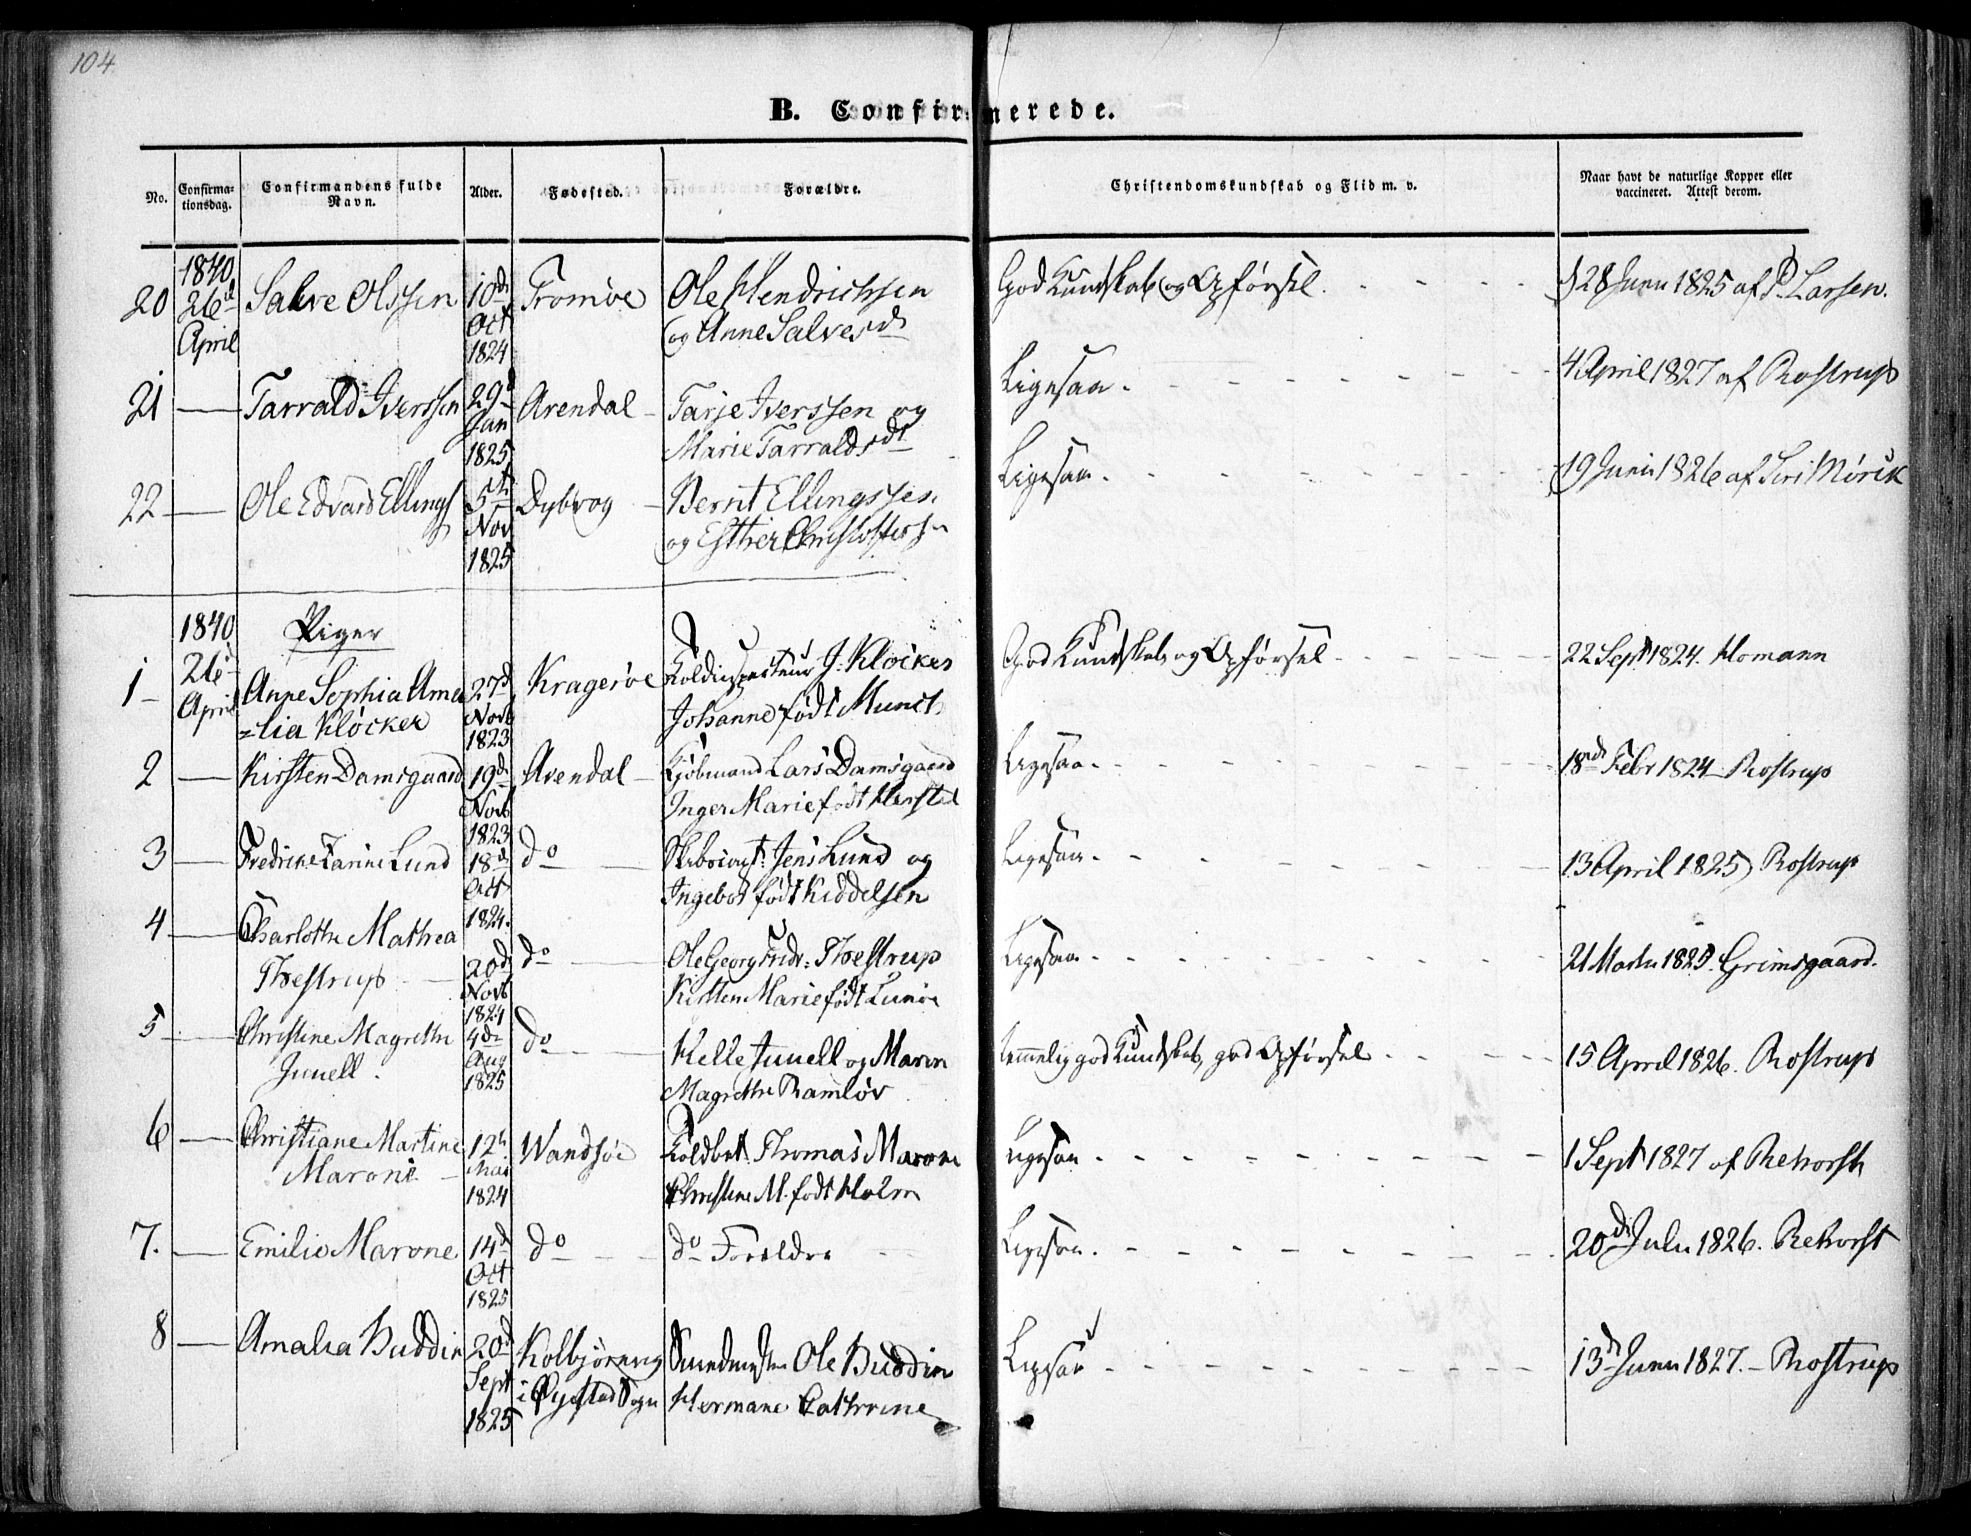 104
B. Confirmerede.
No.
Confirma-
tionsdag.
Confirmandens fulde
Navn.
Alder.
Fødested.
Forældre.
Christendomskundskab og Flid m. v.
Naar havt de naturlige Kopper eller
vaccineret. Attest derom.
20 1840 26d April Salve Olssen 10de Oct 1824 Tromøe Ole Hendrichsen
og Anne Salvesdt
God Kundskab og Opførsel. 28 Juni 1825 af P. Larsen.
21 — Tarrald Iverssen 29d Jan 1825 Arendal Tarje Iverssen og
Marie Tarraldsdt
Ligesaa. 4 April 1827 af Rostrup
22 — Ole Edvard Ellings 5te Nov 1825 Dybvog Bernt Ellingssen
og Esther Christoffersen
Ligesaa. 19 Juni 1826 af Mørck
1840 Piger
1 26d April Anne Sophia Ame
=lia Kløcker 27d Novb 1823 Kragerøe Toldinspecteur J. Kløcker
Johanne født Munch
God Kundskab og Opførsel 22 Sept 1824. Homann
2 — Kirsten Damsgaard 19de Novb 1823 Arendal Kjøbmand Lars Damsgaard
Inger Marie født Hersted
Ligesaa. 18de Febr 1824 Rostrup
3 — Fredrikke Tarine Lund 18de Oct 1824. do Jens Lund og
Ingebor født Kiddelsen
Ligesaa. 13 April 1825 Rostrup
4 — Charlotte Mathea
Thestrup 20d Novb 1824 do Ole Georg Fridr: Thestrup
Kirsten Marie født
Ligesaa 21 1825. Grimsgaard.
5 — Christine Magrethe
Junell. 4de Aug 1825 do Kelle Junell og Maren
Magrethe Ramløv
temmelig god Kundskab, god Opførsel 15 April 1826. Rostrup
6 — Christiane Martine
Marone 12te Mai 1824 Wandsøe Toldbet. Thomas Marone
Christine M. født Holm
Ligesaa 1 Sept 1827 af Rehorst
7. — Emilie Marone 14d Oct 1825 do do Forældre
Ligesaa. 20de Juli 1826. Rehorst
8 — Amalia Buddin 20d Sept 1825 Kolbjørnsvig
i Øyestad Sogn Smedmester Ole Buddin
Hermane Cathrine
Ligesaa 13d Juni 1827. — Rostrup